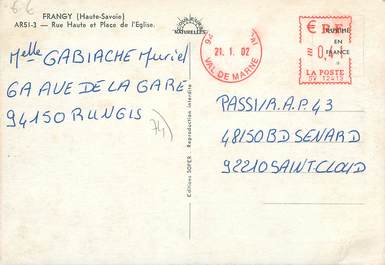 FRANGY (Haute-Savoie)
AR51-3 — Rue Haute et Place de l'Eglise.
COULEURS
NATURELLES
94
21. 1. 02
VAL DE MARNE
€ R.F.
0,41
EN
FRANCE
LA POSTE
Melle GABIACHE Muriel
6A AVE DE LA GARE
94150 RUNGIS
PASSI/R.A.P 43
48150 BD SENARD
92210 SAINT CLOUD
Editions SOFER — Reproduction interdite